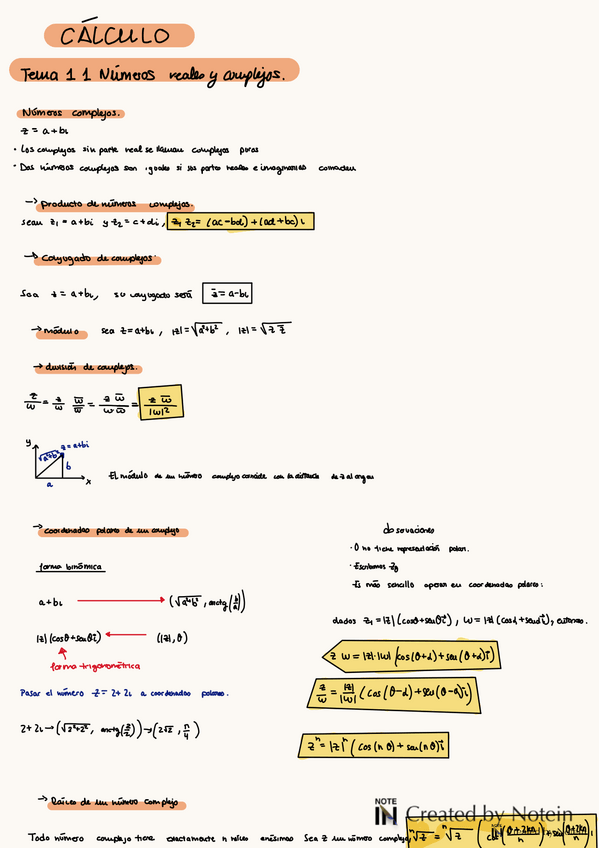 CÁLCULO
Tema 1 1 Números reales y complejos.
Números complejos.
z = a+bi
· Los complejos sin parte real se llaman complejos puros
· Dos números complejos son iguales si sus partes reales e imaginarias coinciden
→ Producto de números complejos.
sean z₁ = a+bi y z₂ = c+di, z₁ z₂ = (ac-bd) + (ad+bc) i
→ Conjugado de complejos
Sea z = a+bi, su conjugado será z̄ = a-bi
→ módulo sea z=a+bi, |z| = √(a²+b²), |z| = √(z z̄)
→ división de complejos.
z/w = z/w w̄/w̄ = z w̄/w w̄ = z w̄/|w|²
y z=a+bi
√(a²+b²) b
a x
El módulo de un número complejo coincide con la distancia de z al origen
→ coordenadas polares de un complejo
forma binómica
a+bi → (√(a²+b²), arctg(b/a))
|z| (cosθ+senθi) ← (|z|, θ)
forma trigonométrica
Pasar el número z = 2+2i a coordenadas polares.
2+2i → (√(2²+2²), arctg(2/2)) → (2√2, π/4)
observaciones
· O no tiene representación polar.
· Escribimos zθ
· Es más sencillo operar en coordenadas polares:
dados z₁ = |z| (cosθ+senθi), w = |z| (cosα+senαi), entonces.
z w = |z|·|w| (cos(θ+α) + sen(θ+α)i)
z/w = |z|/|w| (cos(θ-α) + sen(θ-α)i)
zⁿ = |z|ⁿ (cos(nθ) + sen(nθ)i)
→ Raíces de un número complejo
Todo número complejo tiene exactamente n raíces enésimas Sea z un número complejo, ⁿ√z = ⁿ√z
NOTE IN Created by Notein